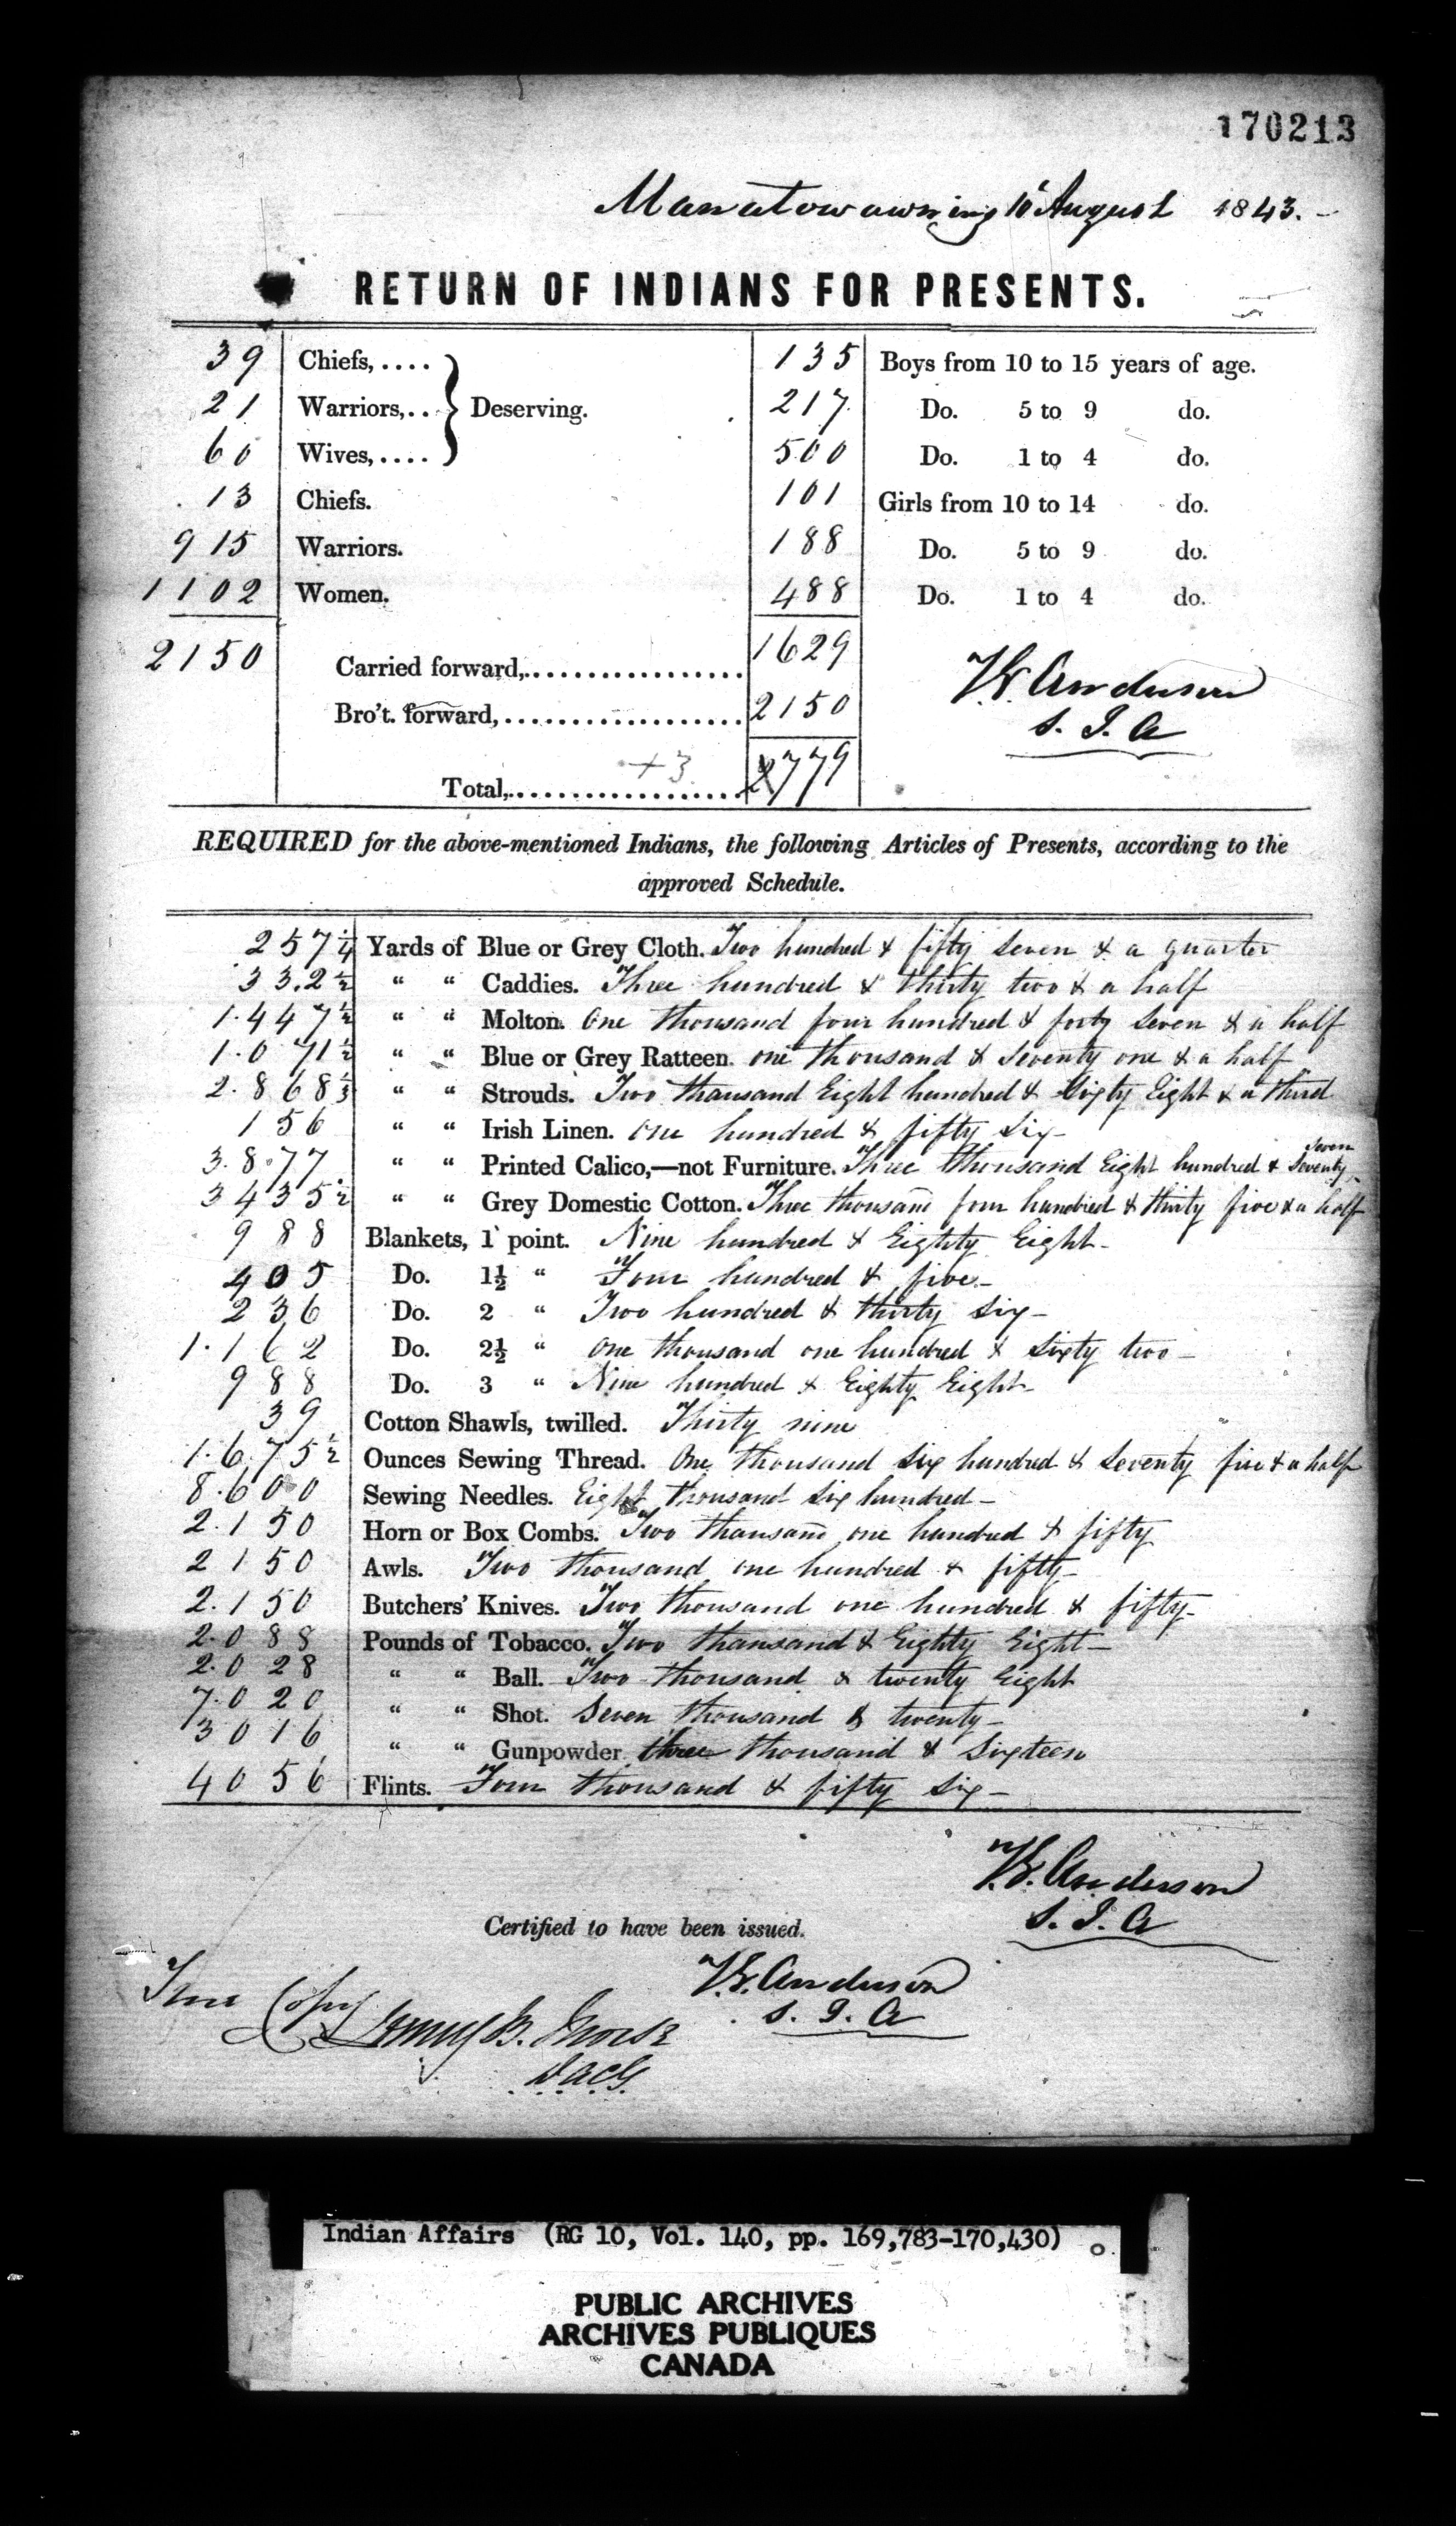 170213
Manatowawning 10 August 1843.
RETURN OF INDIANS FOR PRESENTS.
39 Chiefs,.... Deserving. 135 Boys from 10 to 15 years of age.
21 Warriors,.. 217 Do. 5 to 9 do.
60 Wives,.... 500 Do. 1 to 4 do.
13 Chiefs. 101 Girls from 10 to 14 do.
915 Warriors. 188 Do. 5 to 9 do.
1102 Women. 488 Do. 1 to 4 do.
2150 Carried forward,.................. 1629
Bro't. forward,................... 2150
+3
Total,................... 779
Anderson
S. I. A
REQUIRED for the above-mentioned Indians, the following Articles of Presents, according to the
approved Schedule.
257¼ Yards of Blue or Grey Cloth. Two hundred & fifty seven & a quarter
332½ " " Caddies. Three hundred & thirty two & a half
1.447½ " " Molton. One thousand four hundred & forty seven & a half
1.071½ " " Blue or Grey Ratteen. one thousand & seventy one & a half
2.868⅓ " " Strouds. Two thousand Eight hundred & Sixty Eight & a third
156 " " Irish Linen. One hundred & fifty six
3.877 " " Printed Calico,—not Furniture. Three thousand Eight hundred & Seventy seven
3435½ " " Grey Domestic Cotton. Three thousand four hundred & thirty five & a half
988 Blankets, 1 point. Nine hundred & Eighty Eight
405 Do. 1½ " Four hundred & five
236 Do. 2 " Two hundred & thirty six
1.162 Do. 2½ " One thousand one hundred & sixty two
988 Do. 3 " Nine hundred & Eighty Eight
39 Cotton Shawls, twilled. Thirty nine
1.675½ Ounces Sewing Thread. One thousand six hundred & seventy five & a half
8.600 Sewing Needles. Eight thousand six hundred
2.150 Horn or Box Combs. Two thousand one hundred & fifty
2150 Awls. Two thousand one hundred & fifty
2.150 Butchers' Knives. Two thousand one hundred & fifty
2.088 Pounds of Tobacco. Two thousand & Eighty Eight
2.028 " " Ball. Two thousand & twenty Eight
7.020 " " Shot. Seven thousand & twenty
3016 " " Gunpowder three thousand & Sixteen
4056 Flints. Four thousand & fifty six
Anderson
S. I. A
Certified to have been issued.
Anderson
S. I. A
True Copy
D.A.C.G.
Indian Affairs (RG 10, Vol. 140, pp. 169,783-170,430)
PUBLIC ARCHIVES
ARCHIVES PUBLIQUES
CANADA